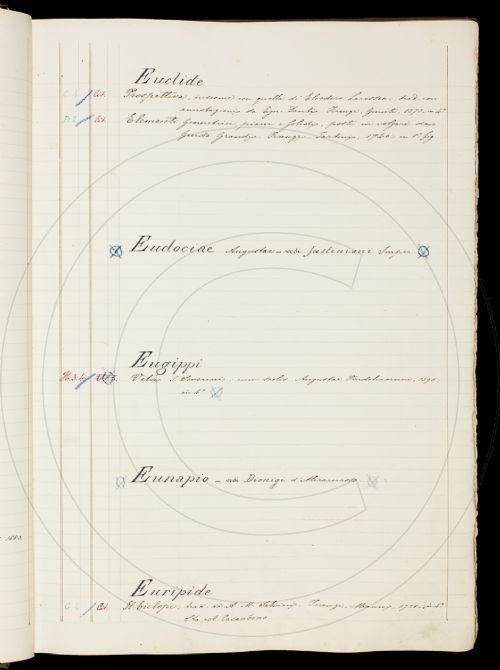 Euclide
Prospettiva, insieme con quella di Eliodoro Larisseo, trad. con
annotazioni da Egn. Danti. Firenze, Giunti, 1573, in 4°
Elementi Geometrici piani e solidi, posti in volgare da
Guido Grandi. Firenze, Tartini, 1740, in 8° fig
Eudociae Augustae vedi Justiniani Imper
Eugippi
H.3.4 Vita S. Severini, cum Augustae Vindelicorum, 1595,
in 4°
Eunapio — vedi Dionigi d'Alicarnasso
Euripide
Il Ciclope, trad. da A. M. Salvini. Firenze, 1728, in 4°
Sta col Casaubono
1603